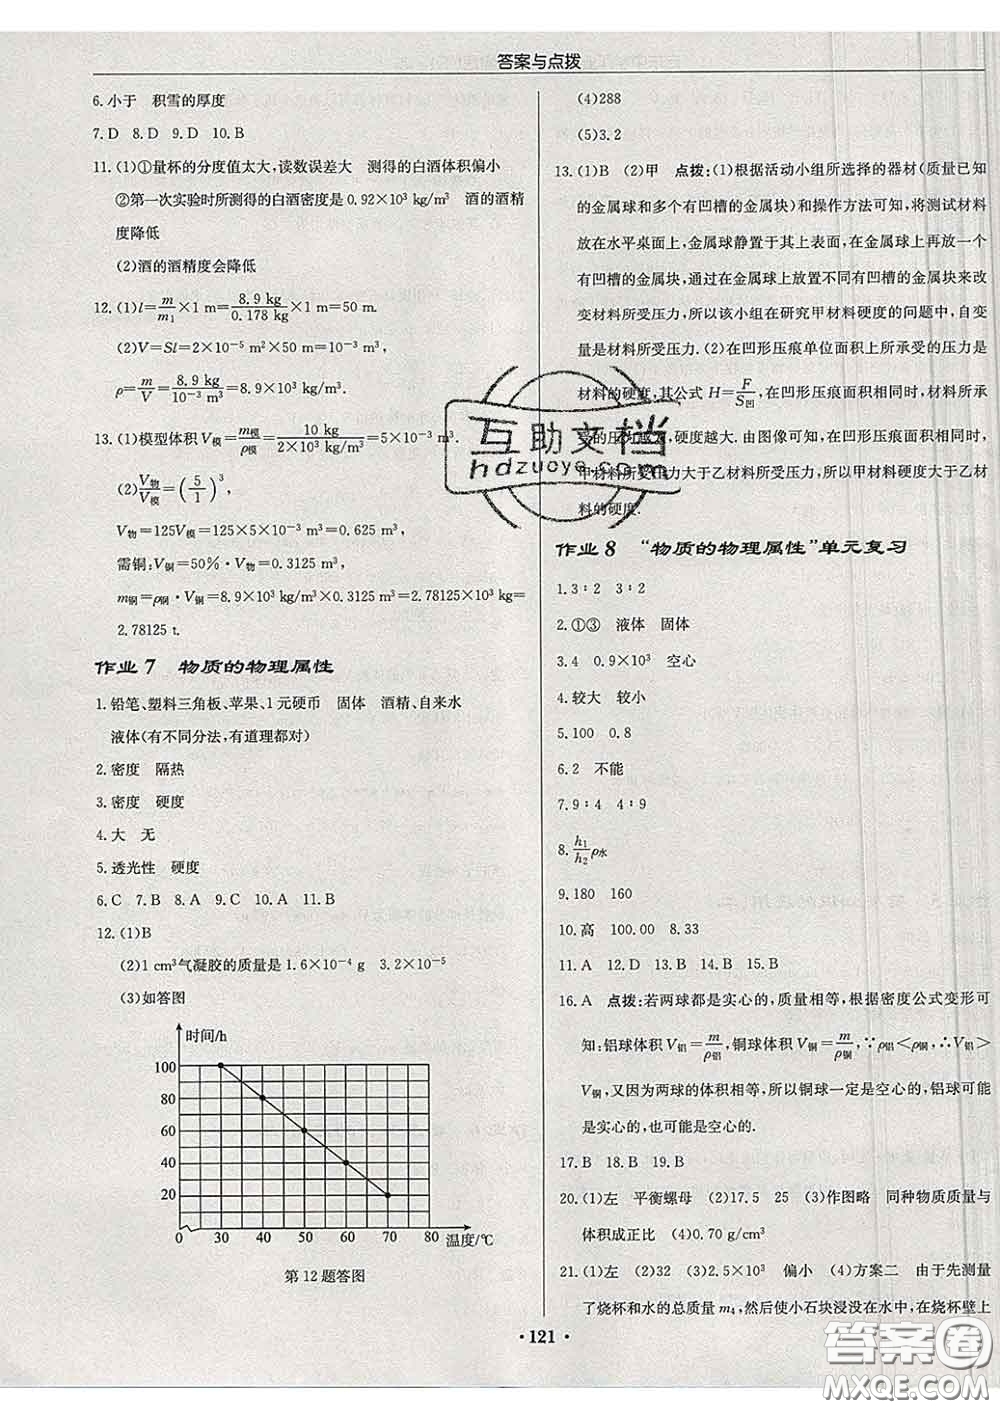 答案与点拨
6.小于　积雪的厚度
7.D　8.D　9.D　10.B
11.(1)①量杯的分度值太大,读数误差大　测得的白酒体积偏小
②第一次实验时所测得的白酒密度是0.92×10³ kg/m³　酒的酒精
度降低
(2)酒的酒精度会降低
12.(1)l=m/m₁×1 m=8.9 kg/0.178 kg×1 m=50 m.
(2)V=Sl=2×10⁻⁵ m²×50 m=10⁻³ m³,
ρ=m/V=8.9 kg/10⁻³ m³=8.9×10³ kg/m³.
13.(1)模型体积V模=m模/ρ模=10 kg/2×10³ kg/m³=5×10⁻³ m³.
(2)V物/V模=(5/1)³,
V物=125V模=125×5×10⁻³ m³=0.625 m³,
需铜:V铜=50%·V物=0.3125 m³,
m铜=ρ铜·V铜=8.9×10³ kg/m³×0.3125 m³=2.78125×10³ kg=
2.78125 t.
作业7　物质的物理属性
1.铅笔、塑料三角板、苹果、1元硬币　固体　酒精、自来水
液体(有不同分法,有道理都对)
2.密度　隔热
3.密度　硬度
4.大　无
5.透光性　硬度
6.C　7.B　8.A　9.C　10.A　11.B
12.(1)B
(2)1 cm³气凝胶的质量是1.6×10⁻⁴ g　3.2×10⁻⁵
(3)如答图
时间/h
100
80
60
40
20
0　30　40　50　60　70　80　温度/℃
第12题答图
(4)288
(5)3.2
13.(1)B　(2)甲　点拨:(1)根据活动小组所选择的器材(质量已知
的金属球和多个有凹槽的金属块)和操作方法可知,将测试材料
放在水平桌面上,金属球静置于其上表面,在金属球上再放一个
有凹槽的金属块,通过在金属球上放置不同有凹槽的金属块来改
变材料所受压力,所以该小组在研究甲材料硬度的问题中,自变
量是材料所受压力.(2)在凹形压痕单位面积上所承受的压力是
材料的硬度,其公式H=F/S凹,在凹形压痕面积相同时,材料所承
受的压力越大,硬度越大.由图像可知,在凹形压痕面积相同时,
甲材料所受压力大于乙材料所受压力,所以甲材料硬度大于乙材
料的硬度.
作业8　“物质的物理属性”单元复习
1.3∶2　3∶2
2.①③　液体　固体
3.4　0.9×10³　空心
4.较大　较小
5.100　0.8
6.2　不能
7.9∶4　4∶9
8.h₁/h₂ρ水
9.180　160
10.高　100.00　8.33
11.A　12.D　13.B　14.B　15.B
16.A　点拨:若两球都是实心的,质量相等,根据密度公式变形可
知:铝球体积V铝=m/ρ铝,铜球体积V铜=m/ρ铜,∵ρ铝<ρ铜,∴V铝>
V铜,又因为两球的体积相等,所以铜球一定是空心的,铝球可能
是实心的,也可能是空心的.
17.B　18.B　19.B
20.(1)左　平衡螺母　(2)17.5　25　(3)作图略　同种物质质量与
体积成正比　(4)0.70 g/cm³
21.(1)左　(2)32　(3)2.5×10³　偏小　(4)方案二　由于先测量
了烧杯和水的总质量m₄,然后使小石块浸没在水中,在烧杯壁上
·121·
互助文档
hdzuoye.com
答案圈
MXQE.COM